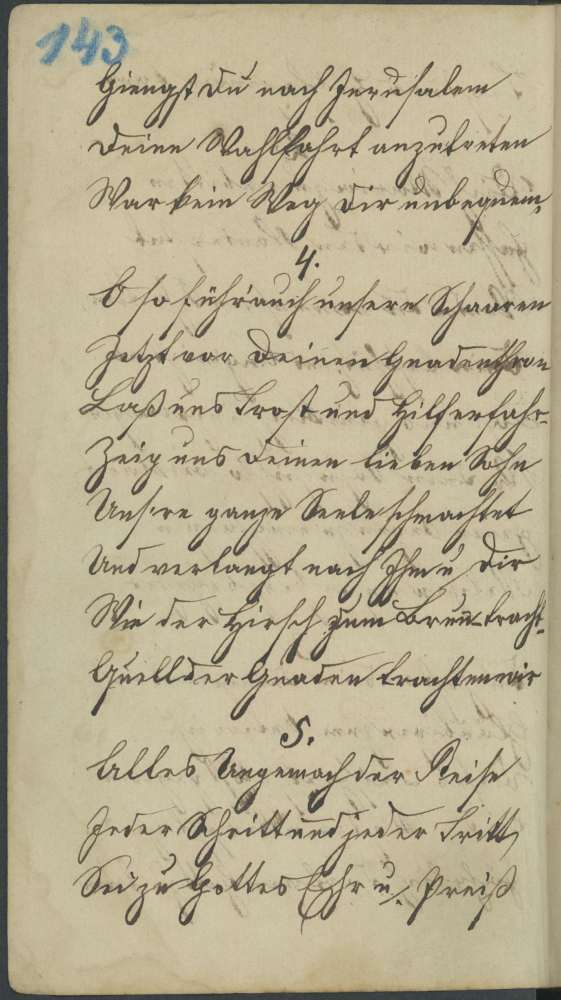 143
Giengst Du nach Jerusalem
Deine Wahlfahrt anzutreten
War kein Weg Dir unbequem,
4.
O so führ' auch unsere Schaaren
Jetzt vor Deinen Gnadenthron
Laß uns Trost und Hilf erfahr-
Zeig uns deinen lieben Sohn
Uns're ganze Seele schmachtet
Und verlangt nach Ihm u. Dir
Wie der Hirsch zum Brun̄ tracht-
Quell der Gnaden trachten wir
5.
Alles Ungemach der Reise
Jeder Schritt und jeder Tritt
Sei zu Gottes Ehr u. Preiß